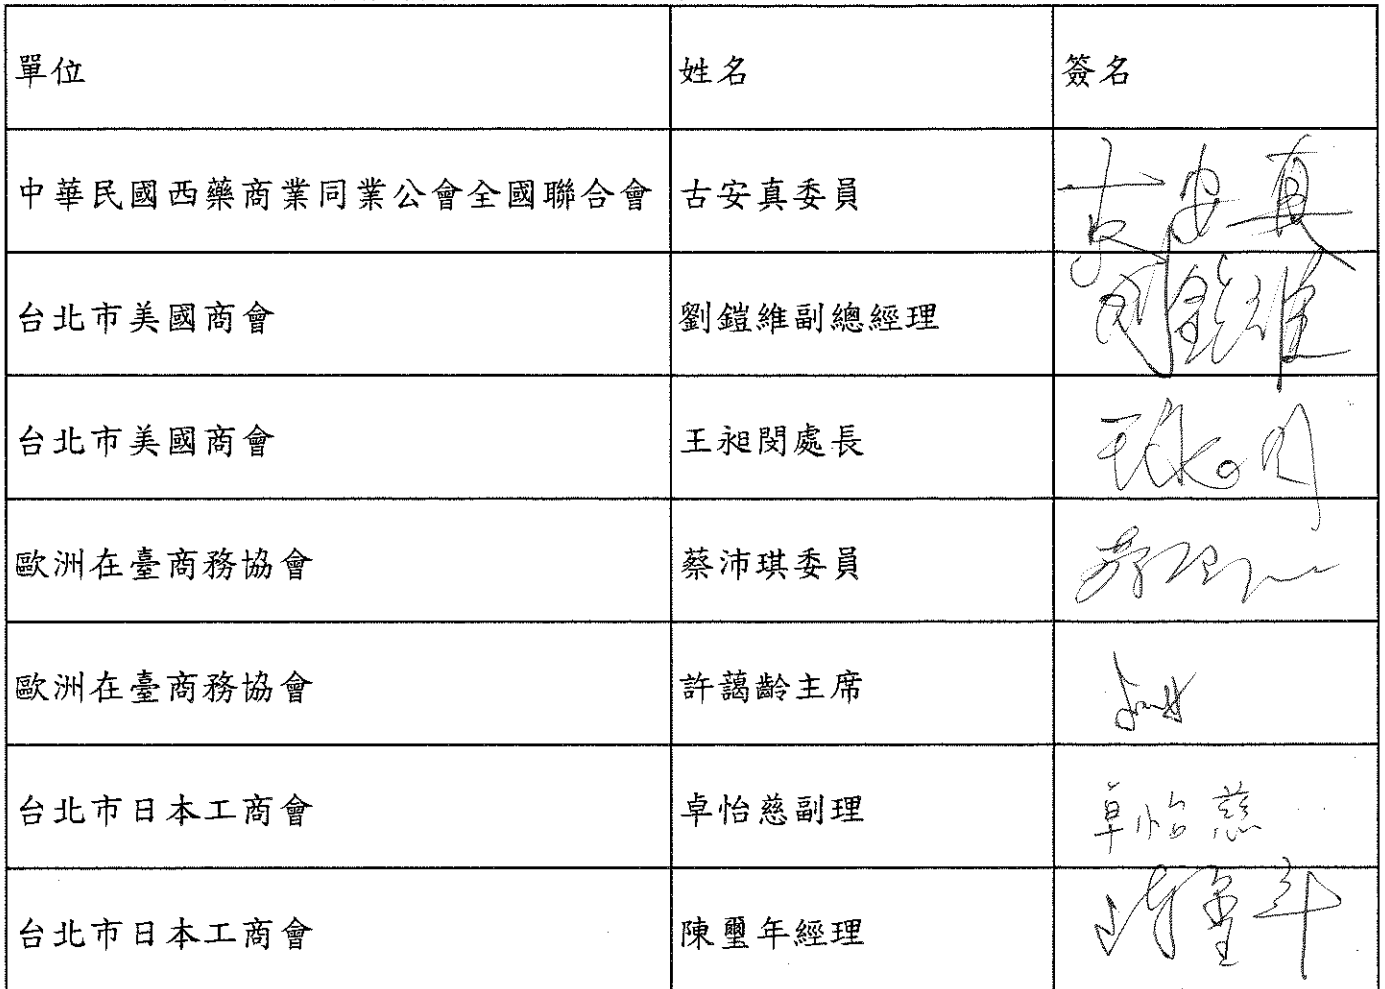 單位 姓名 簽名
中華民國西藥商業同業公會全國聯合會 古安真委員 古安真
台北市美國商會 劉鎧維副總經理 劉鎧維
台北市美國商會 王昶閔處長
歐洲在臺商務協會 蔡沛琪委員
歐洲在臺商務協會 許藹齡主席
台北市日本工商會 卓怡慈副理 卓怡慈
台北市日本工商會 陳璽年經理 陳璽年